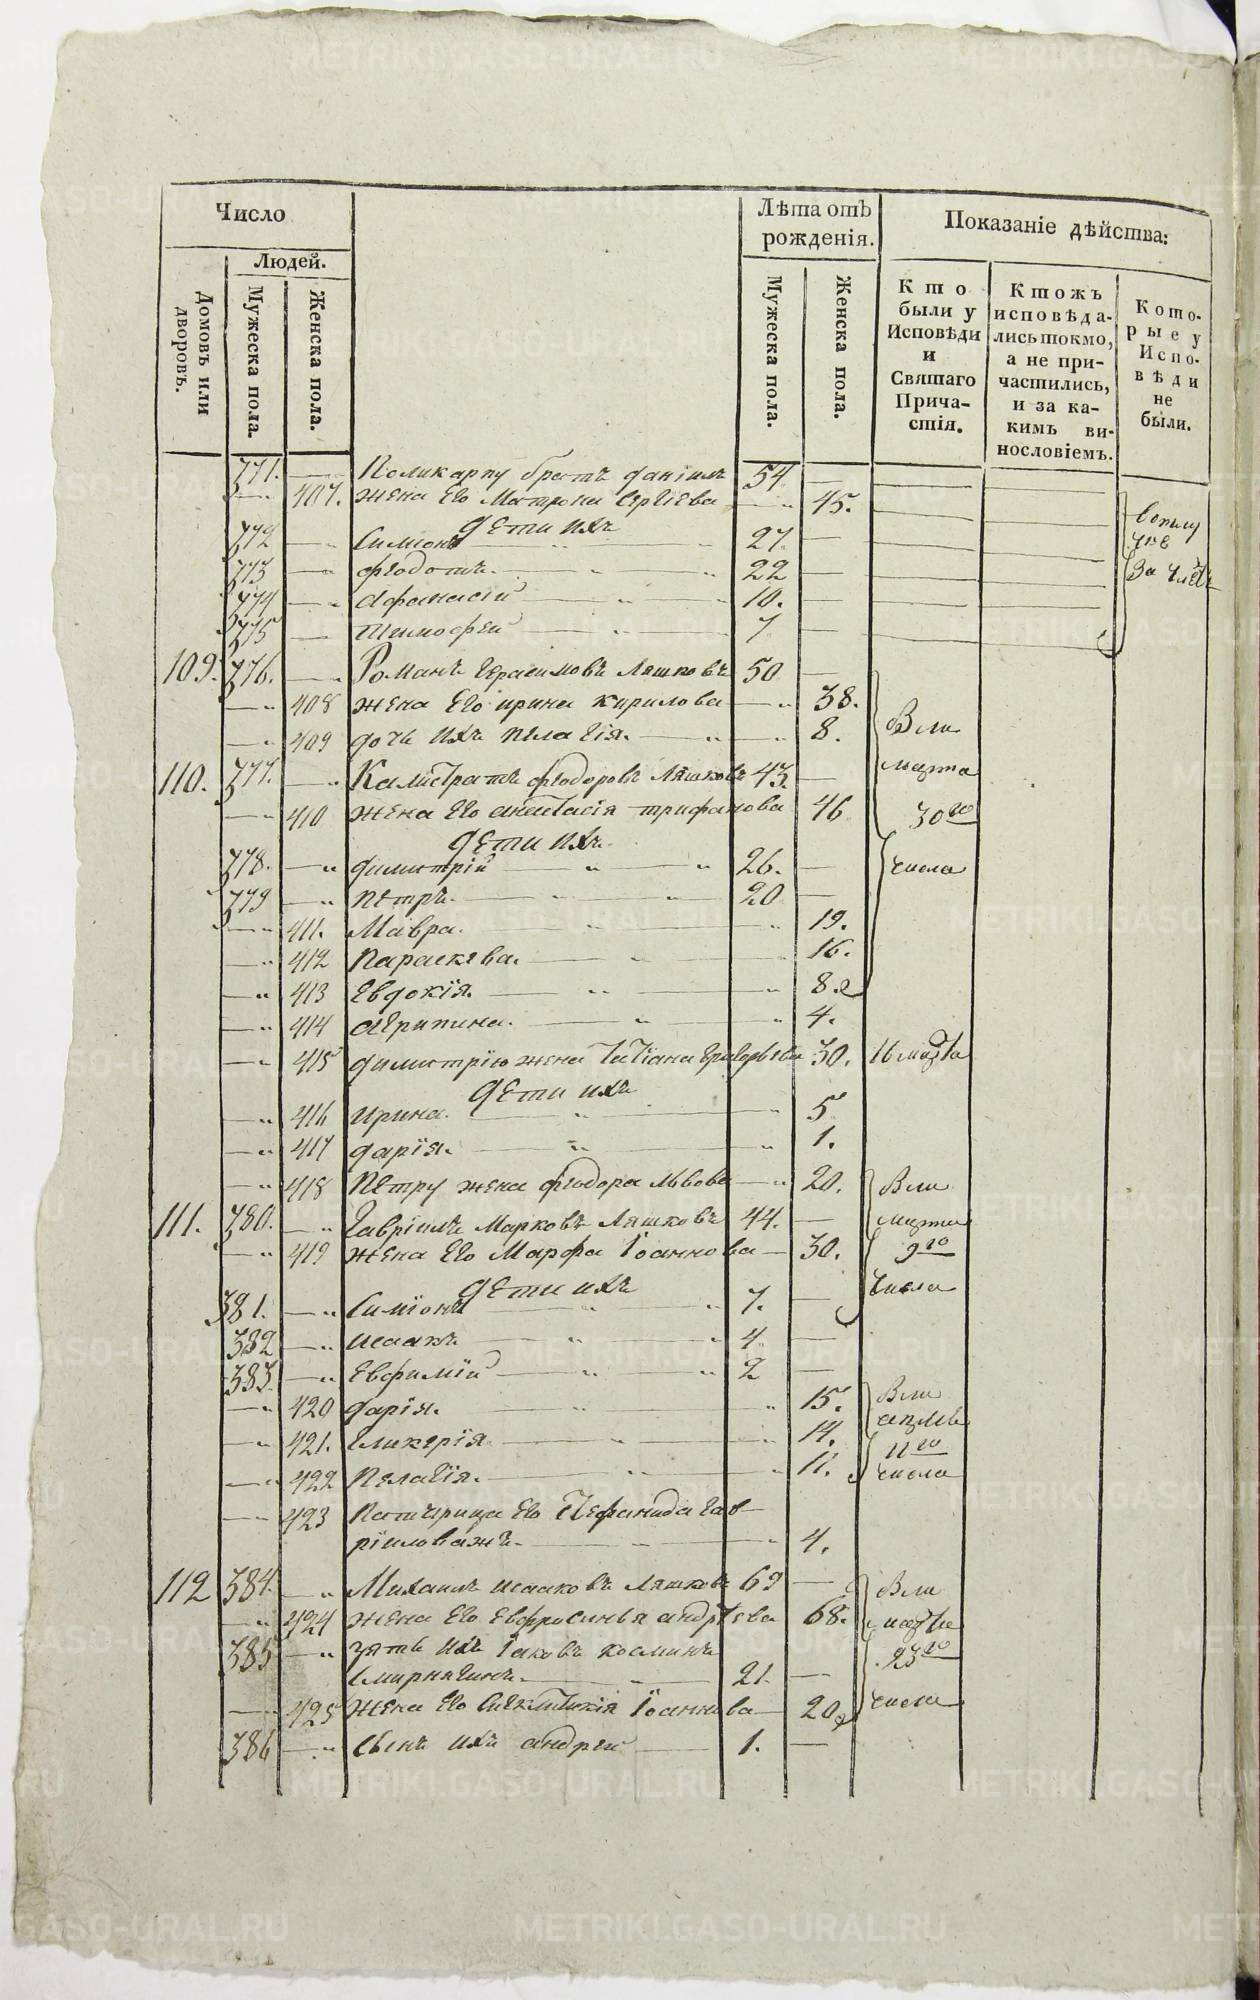 Число
Людей.
Домовъ или дворовъ.
Мужеска пола.
Женска пола.
Лѣта отъ рожденія.
Мужеска пола.
Женска пола.
Показаніе дѣйства:
Кто были у Исповѣди и Святаго Причастія.
Ктожъ исповѣдались токмо, а не причастились, и за какимъ винословіемъ.
Которые у Исповѣди не были.
371. Поликарпу братъ даніилъ 54
407. жена Его Матрона Сергіева 45.
дѣти ихъ
372 Симіонъ 27.
373 феодотъ. 22
374 Афанасій 10.
375 Тимофей 7
109. 376. Романъ Герасимовъ Ляшковъ 50
408 жена Его ирина кирилова 38.
409 дочь ихъ пелагія. 8.
Вели
марта
30го
числа
110. 377. Калистратъ феодоровъ Ляшковъ 43.
410 жена Его анастасія трифанова 46
дѣти ихъ.
378. димитрій 26.
379 пѣтръ. 20
411. Мавра. 19.
412 параскева. 16.
413 Евдокія. 8.
414 агрипина. 4.
415 димитрію жена Татіана григорьева 30. 16 марта
дѣти ихъ
416 ирина. 5
417 дарія. 1.
418 пѣтру жена феодора львова 20.
Вели
марта
9го
числа
111. 380. Гавріилъ Марковъ Ляшковъ 44.
419 жена Его Марфа Іоаннова 30.
дѣти ихъ
381. Симіонъ 7.
382 исаакъ 4
383. Евфимій 2
420 дарія. 15.
421. гликерія 14.
422 пелагія. 11.
Вели
апрля
11го
числа
423 падчерица Его Стефанида гав-
ріиловажъ. 4.
112 384. Михаилъ исааковъ Ляшковъ 69
424 жена Его Евфросинья андрѣева 68.
385 зять ихъ Іаковъ косминъ
Смирнягинъ. 21.
425 жена Его Сиклитикія Іоаннова 20
386 сынъ ихъ андрей 1.
Вели
марта
23го
числа
METRIKI.GASO-URAL.RU